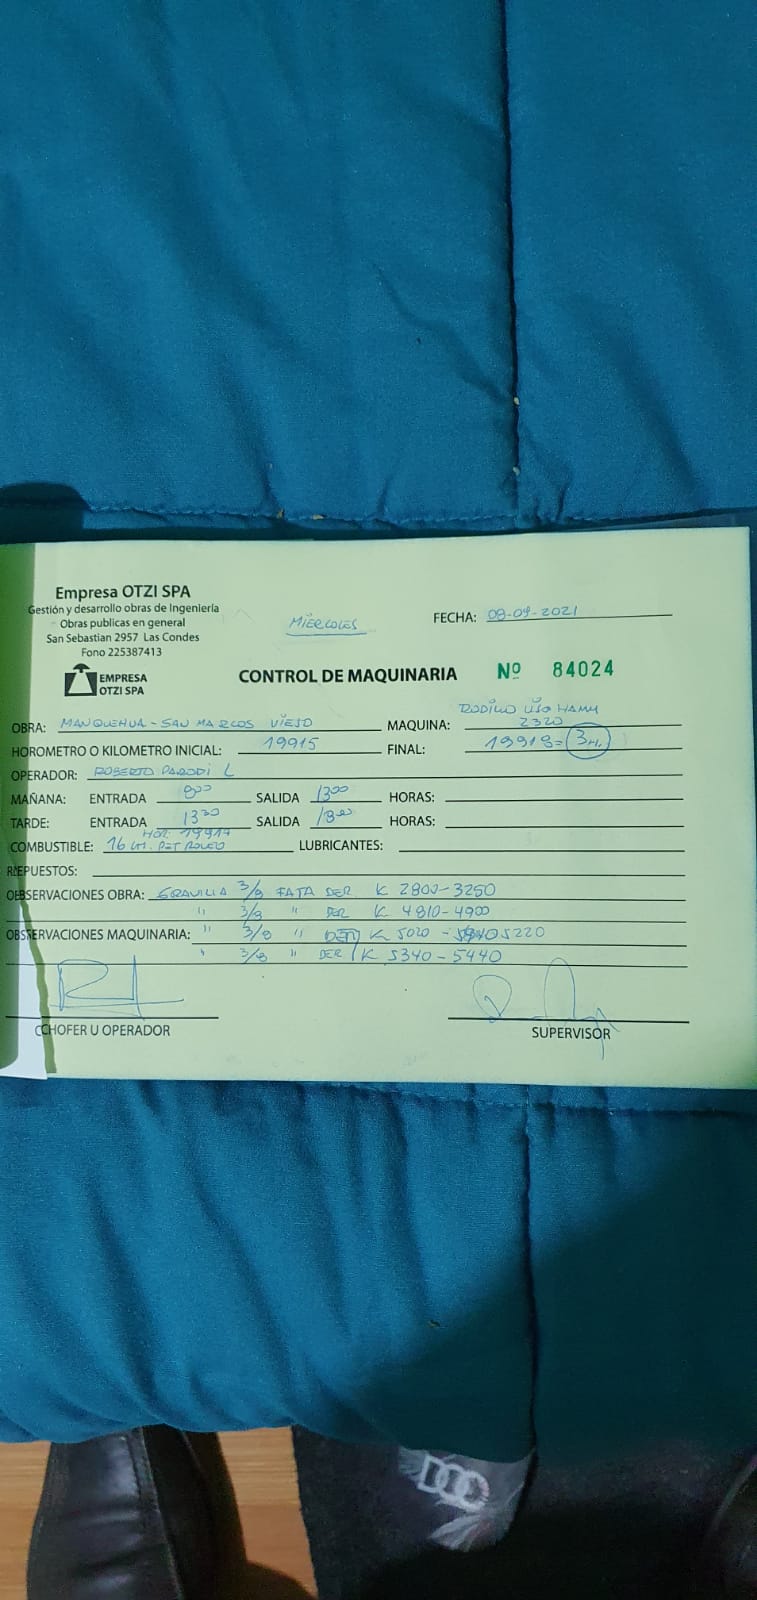 Empresa OTZI SPA
Gestión y desarrollo obras de Ingeniería
Obras publicas en general
San Sebastian 2957 Las Condes
Fono 225387413
EMPRESA
OTZI SPA
MIERCOLES
FECHA: 08-09-2021
CONTROL DE MAQUINARIA Nº 84024
RODILLO LISO HAMM
OBRA: MANQUEHUA - SAN MARCOS VIEJO MAQUINA: 2320
HOROMETRO O KILOMETRO INICIAL: 19915 FINAL: 19918= 3H.
OPERADOR: ROBERTO PARODI L
MAÑANA: ENTRADA 8:00 SALIDA 13:00 HORAS:
TARDE: ENTRADA 13:30 SALIDA 18:00 HORAS:
HOR: 19917
COMBUSTIBLE: 16 Lt. PETROLEO LUBRICANTES:
REPUESTOS:
OBSERVACIONES OBRA: GRAVILLA 3/8 FAJA DER K 2800-3250
" 3/8 " DER K 4810-4900
OBSERVACIONES MAQUINARIA: " 3/8 " K 5020 - 5220
" 3/8 " DER K 5340-5440
CHOFER U OPERADOR
SUPERVISOR